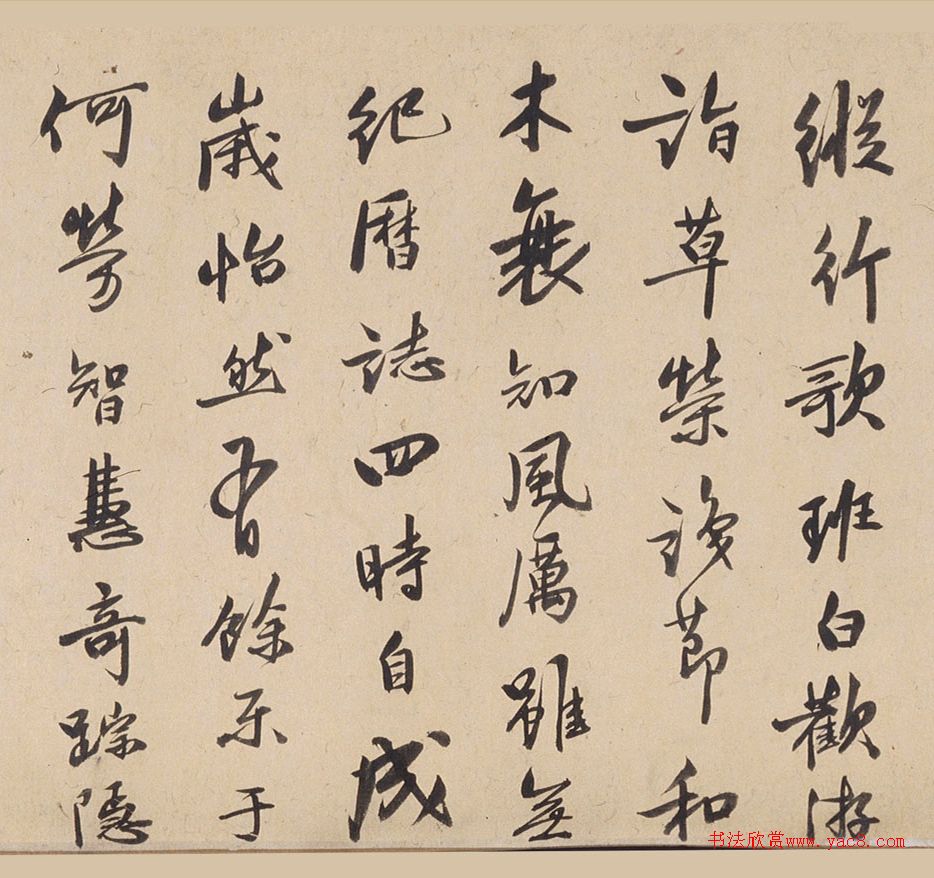 縱行歌班白歡游
詣草榮識節和
木衰知風厲雖無
紀曆誌四時自成
歲怡然有餘樂于
何勞智慧奇蹤隱
书法欣赏www.yac8.com